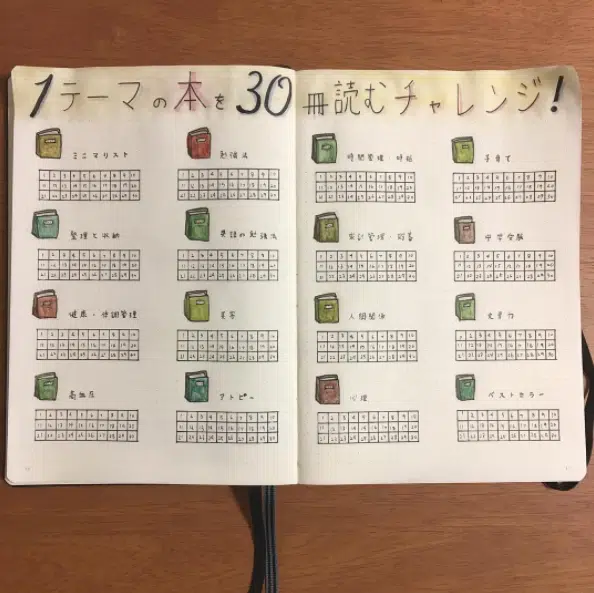 1テーマの本を30冊読むチャレンジ!
ミニマリスト
1 2 3 4 5 6 7 8 9 10
11 12 13 14 15 16 17 18 19 20
21 22 23 24 25 26 27 28 29 30
勉強法
1 2 3 4 5 6 7 8 9 10
11 12 13 14 15 16 17 18 19 20
21 22 23 24 25 26 27 28 29 30
整理と収納
1 2 3 4 5 6 7 8 9 10
11 12 13 14 15 16 17 18 19 20
21 22 23 24 25 26 27 28 29 30
英語の勉強法
1 2 3 4 5 6 7 8 9 10
11 12 13 14 15 16 17 18 19 20
21 22 23 24 25 26 27 28 29 30
健康・体調管理
1 2 3 4 5 6 7 8 9 10
11 12 13 14 15 16 17 18 19 20
21 22 23 24 25 26 27 28 29 30
美容
1 2 3 4 5 6 7 8 9 10
11 12 13 14 15 16 17 18 19 20
21 22 23 24 25 26 27 28 29 30
高血圧
1 2 3 4 5 6 7 8 9 10
11 12 13 14 15 16 17 18 19 20
21 22 23 24 25 26 27 28 29 30
アトピー
1 2 3 4 5 6 7 8 9 10
11 12 13 14 15 16 17 18 19 20
21 22 23 24 25 26 27 28 29 30
時間管理・時短
1 2 3 4 5 6 7 8 9 10
11 12 13 14 15 16 17 18 19 20
21 22 23 24 25 26 27 28 29 30
子育て
1 2 3 4 5 6 7 8 9 10
11 12 13 14 15 16 17 18 19 20
21 22 23 24 25 26 27 28 29 30
家計管理・貯蓄
1 2 3 4 5 6 7 8 9 10
11 12 13 14 15 16 17 18 19 20
21 22 23 24 25 26 27 28 29 30
中学受験
1 2 3 4 5 6 7 8 9 10
11 12 13 14 15 16 17 18 19 20
21 22 23 24 25 26 27 28 29 30
人間関係
1 2 3 4 5 6 7 8 9 10
11 12 13 14 15 16 17 18 19 20
21 22 23 24 25 26 27 28 29 30
文章力
1 2 3 4 5 6 7 8 9 10
11 12 13 14 15 16 17 18 19 20
21 22 23 24 25 26 27 28 29 30
心理
1 2 3 4 5 6 7 8 9 10
11 12 13 14 15 16 17 18 19 20
21 22 23 24 25 26 27 28 29 30
ベストセラー
1 2 3 4 5 6 7 8 9 10
11 12 13 14 15 16 17 18 19 20
21 22 23 24 25 26 27 28 29 30